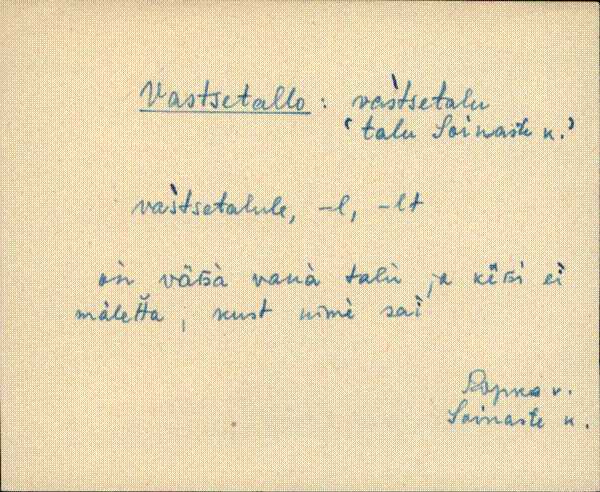 Vastsetallo: vastsetalu
'talu Soinaste k.'
vastsetalule, -l, -lt
oĺi väɢà vanà talù ja kèɢi ei
mäletta, kust nimè sai
Ropka v.
Soinaste k.